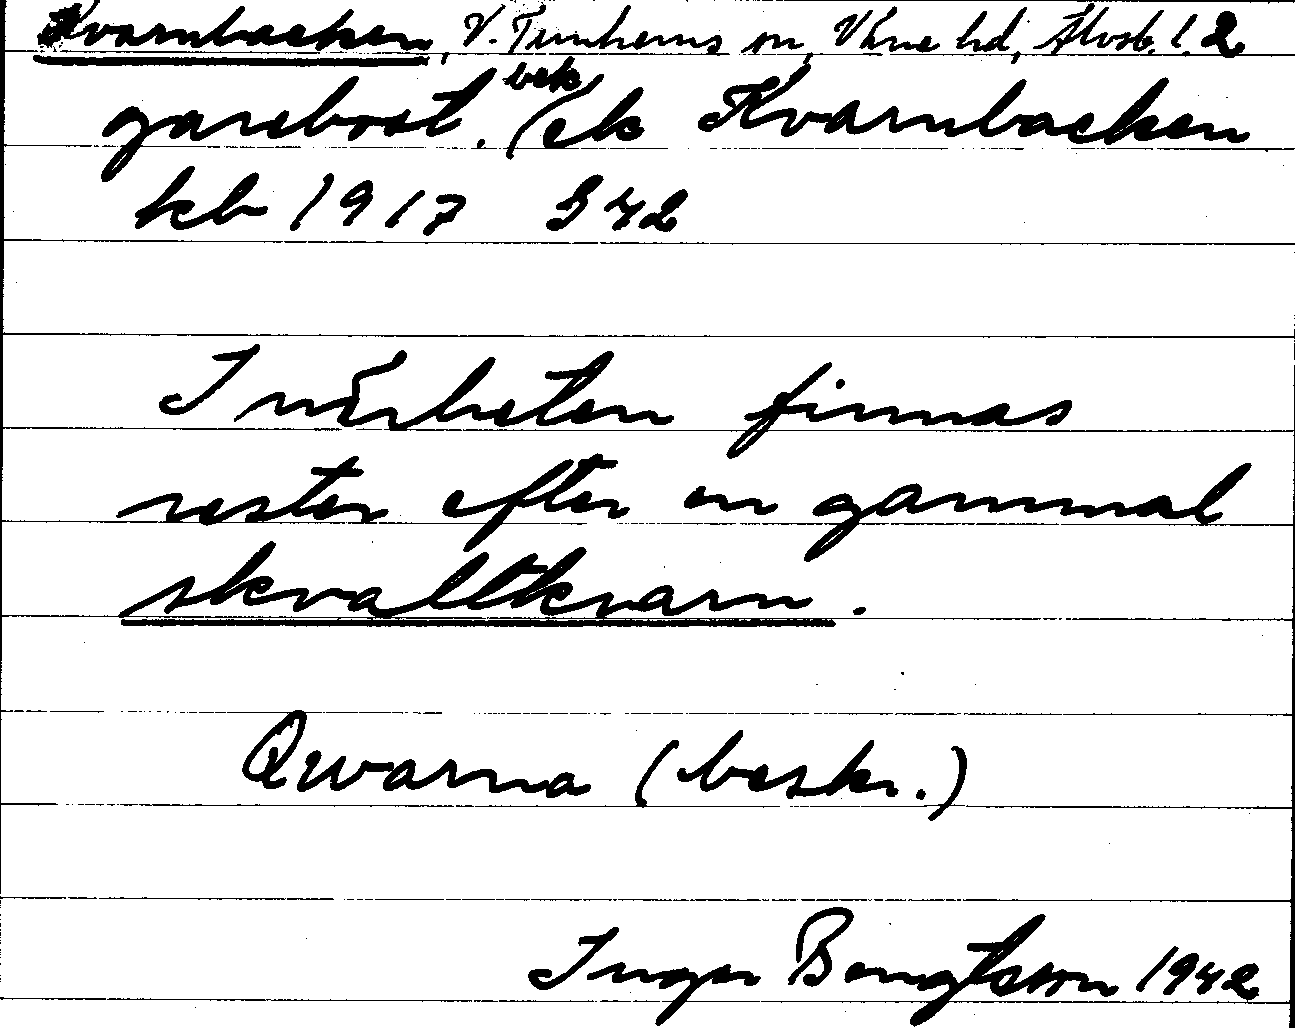 Kvarnbacken, V. Tunhems sn, Väne hd, Älvsb. l. 2
garebost. bek (ek Kvarnbacken
kb 1917 S 42
I närheten finnas
rester efter en gammal
skvaltkvarn.
Qwarna (beskr.)
Inger Bengtsson 1942